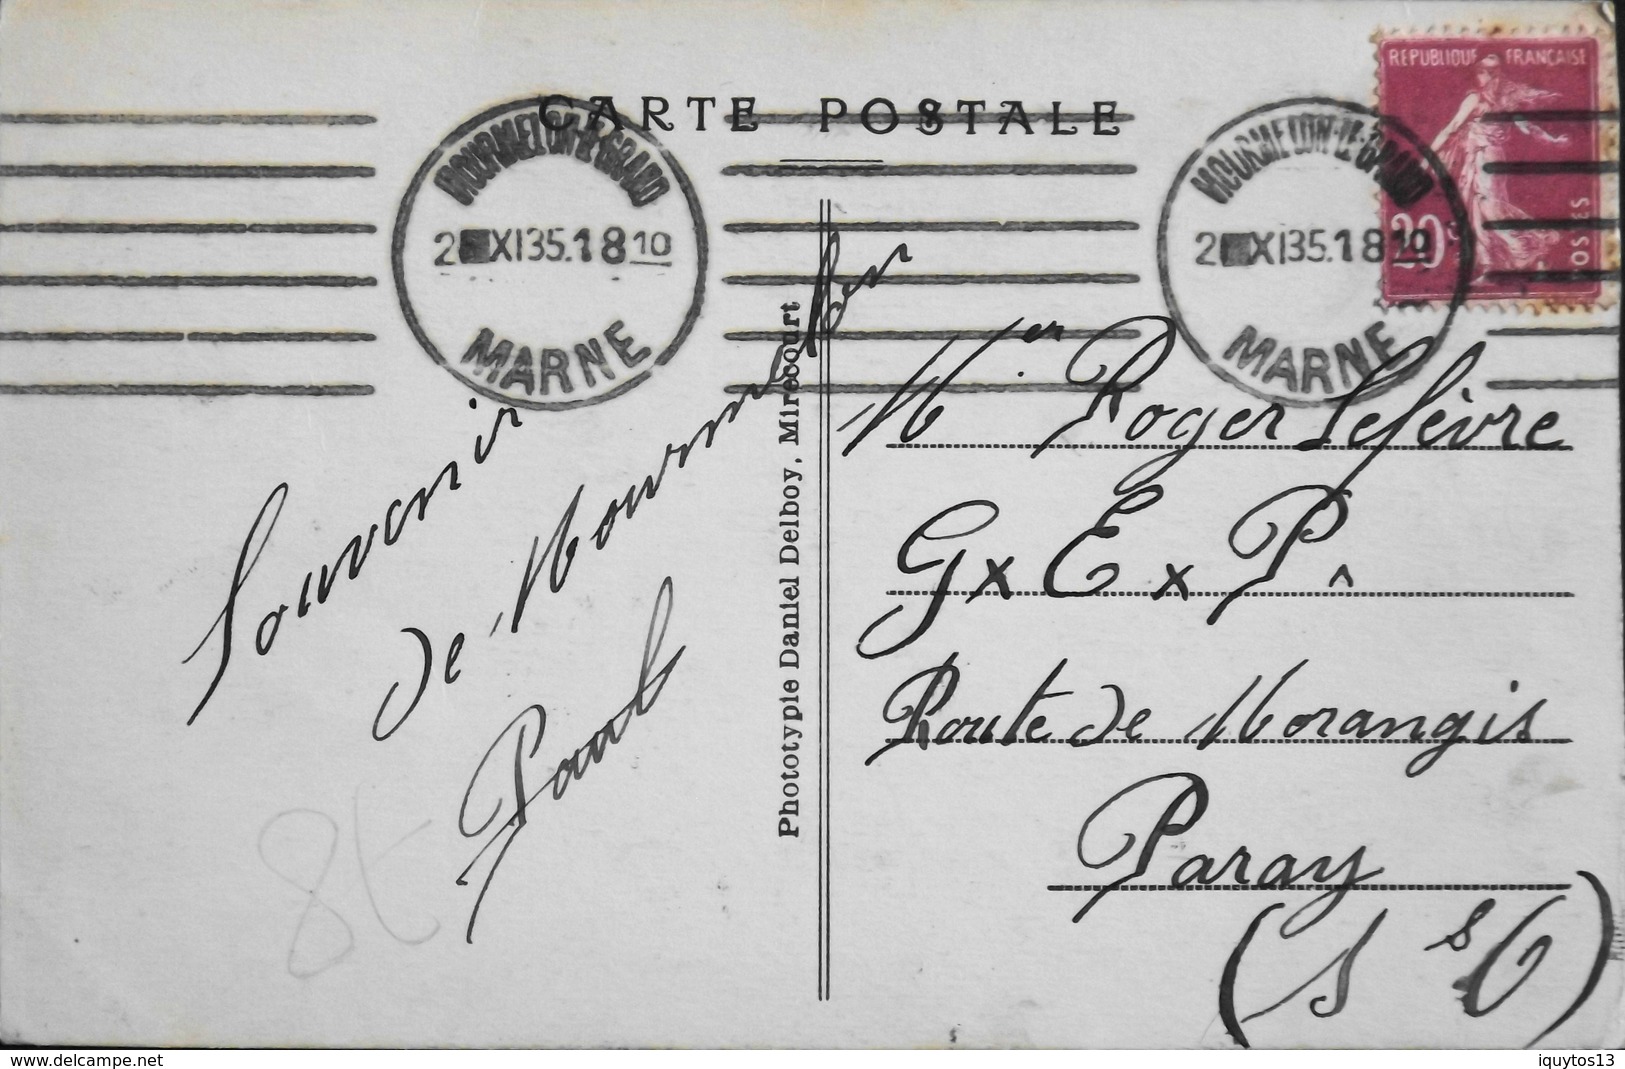 CARTE POSTALE
REPUBLIQUE FRANCAISE
20c
POSTES
MOURMELON-LE-GRAND
2 XI 35. 18 10
MARNE
MOURMELON-LE-GRAND
2 XI 35. 18 10
MARNE
Souvenir
de Mourmelon
Paul
8t
Phototypie Daniel Delboy, Mirecourt
Mr Roger Lefèvre
G x E x P
Route de Morangis
Paray
(S s O)
www.delcampe.net
iquytos13